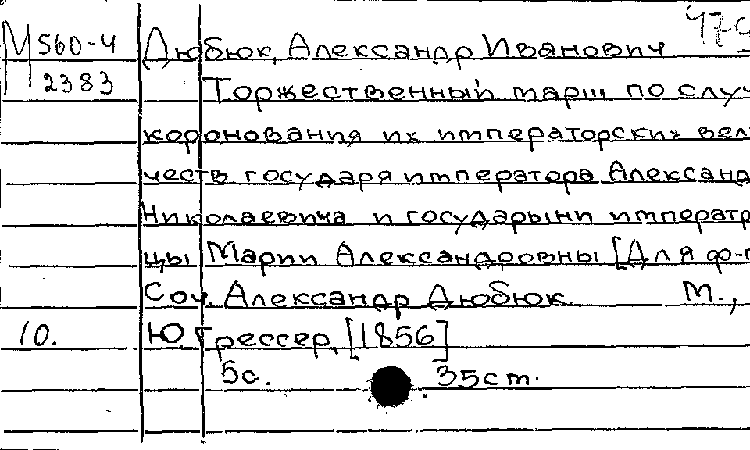 М 560-4 Дюбюк, Александр Иванович 479
2383 Торжественный марш по случ
коронования их императорских вел
честв государя императора Александ
Николаевича и государыни императр
цы Марии Александровны [Для ф-п
Соч. Александр Дюбюк. М.,
10. Ю. Грессер, [1856]
5с. 35 ст.